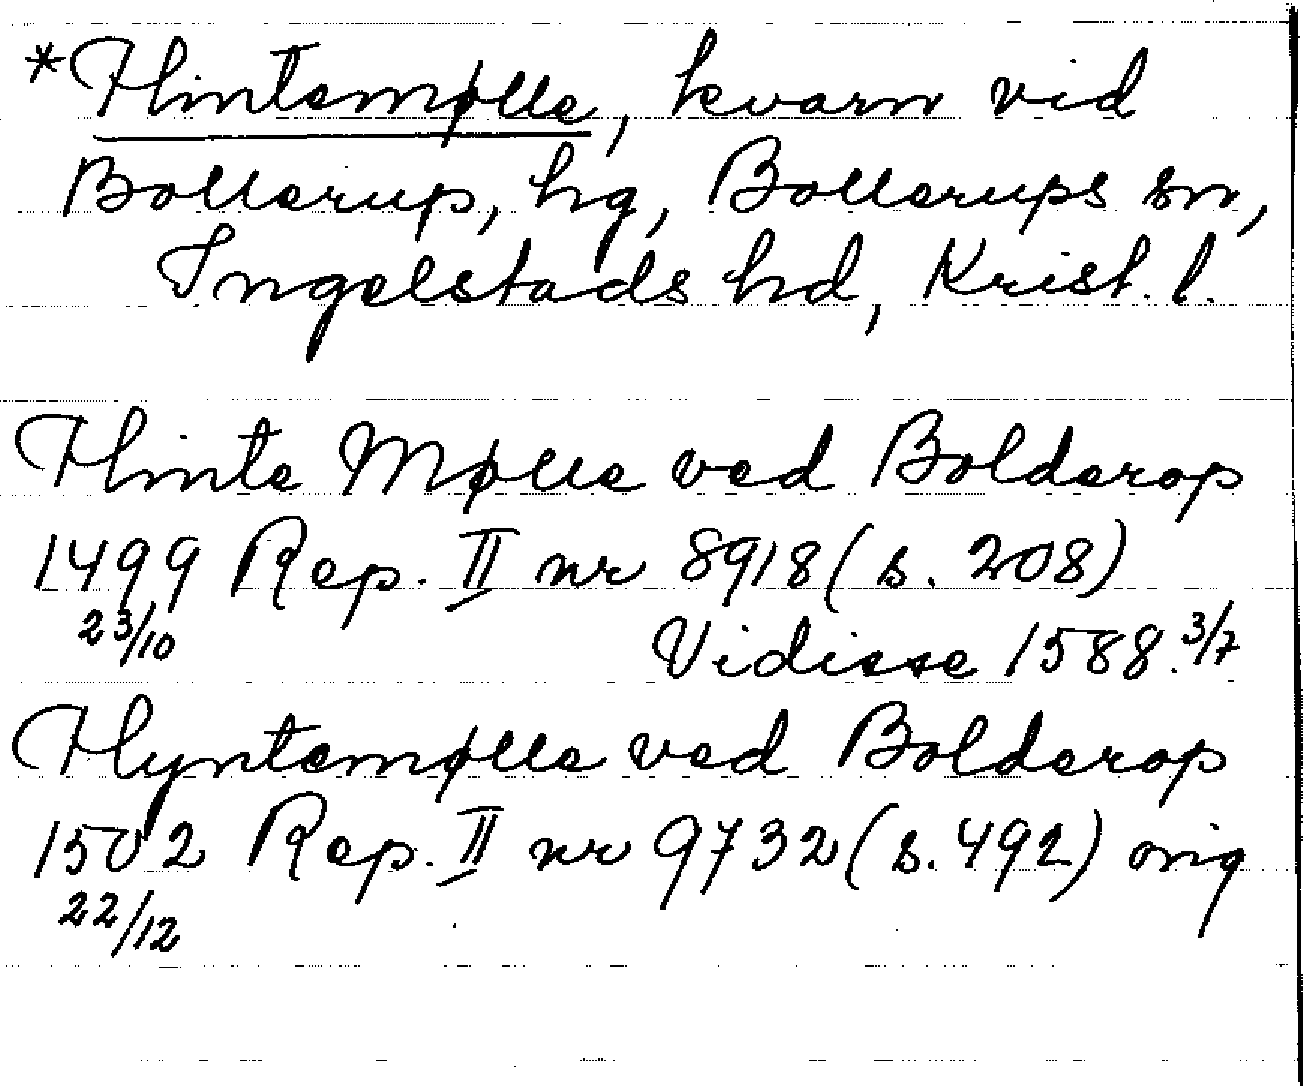 *Hintemølle, kvarn vid
Bollerup, hg, Bollerups sn,
Ingelstads hd, Krist. l.
Hinte Mølle ved Bolderop
1499 Rep. II nr 8918 (s. 208)
23/10 Vidisse 1588. 3/7
Hyntemølle ved Bolderop
1502 Rep. II nr 9732 (s. 492) orig
22/12